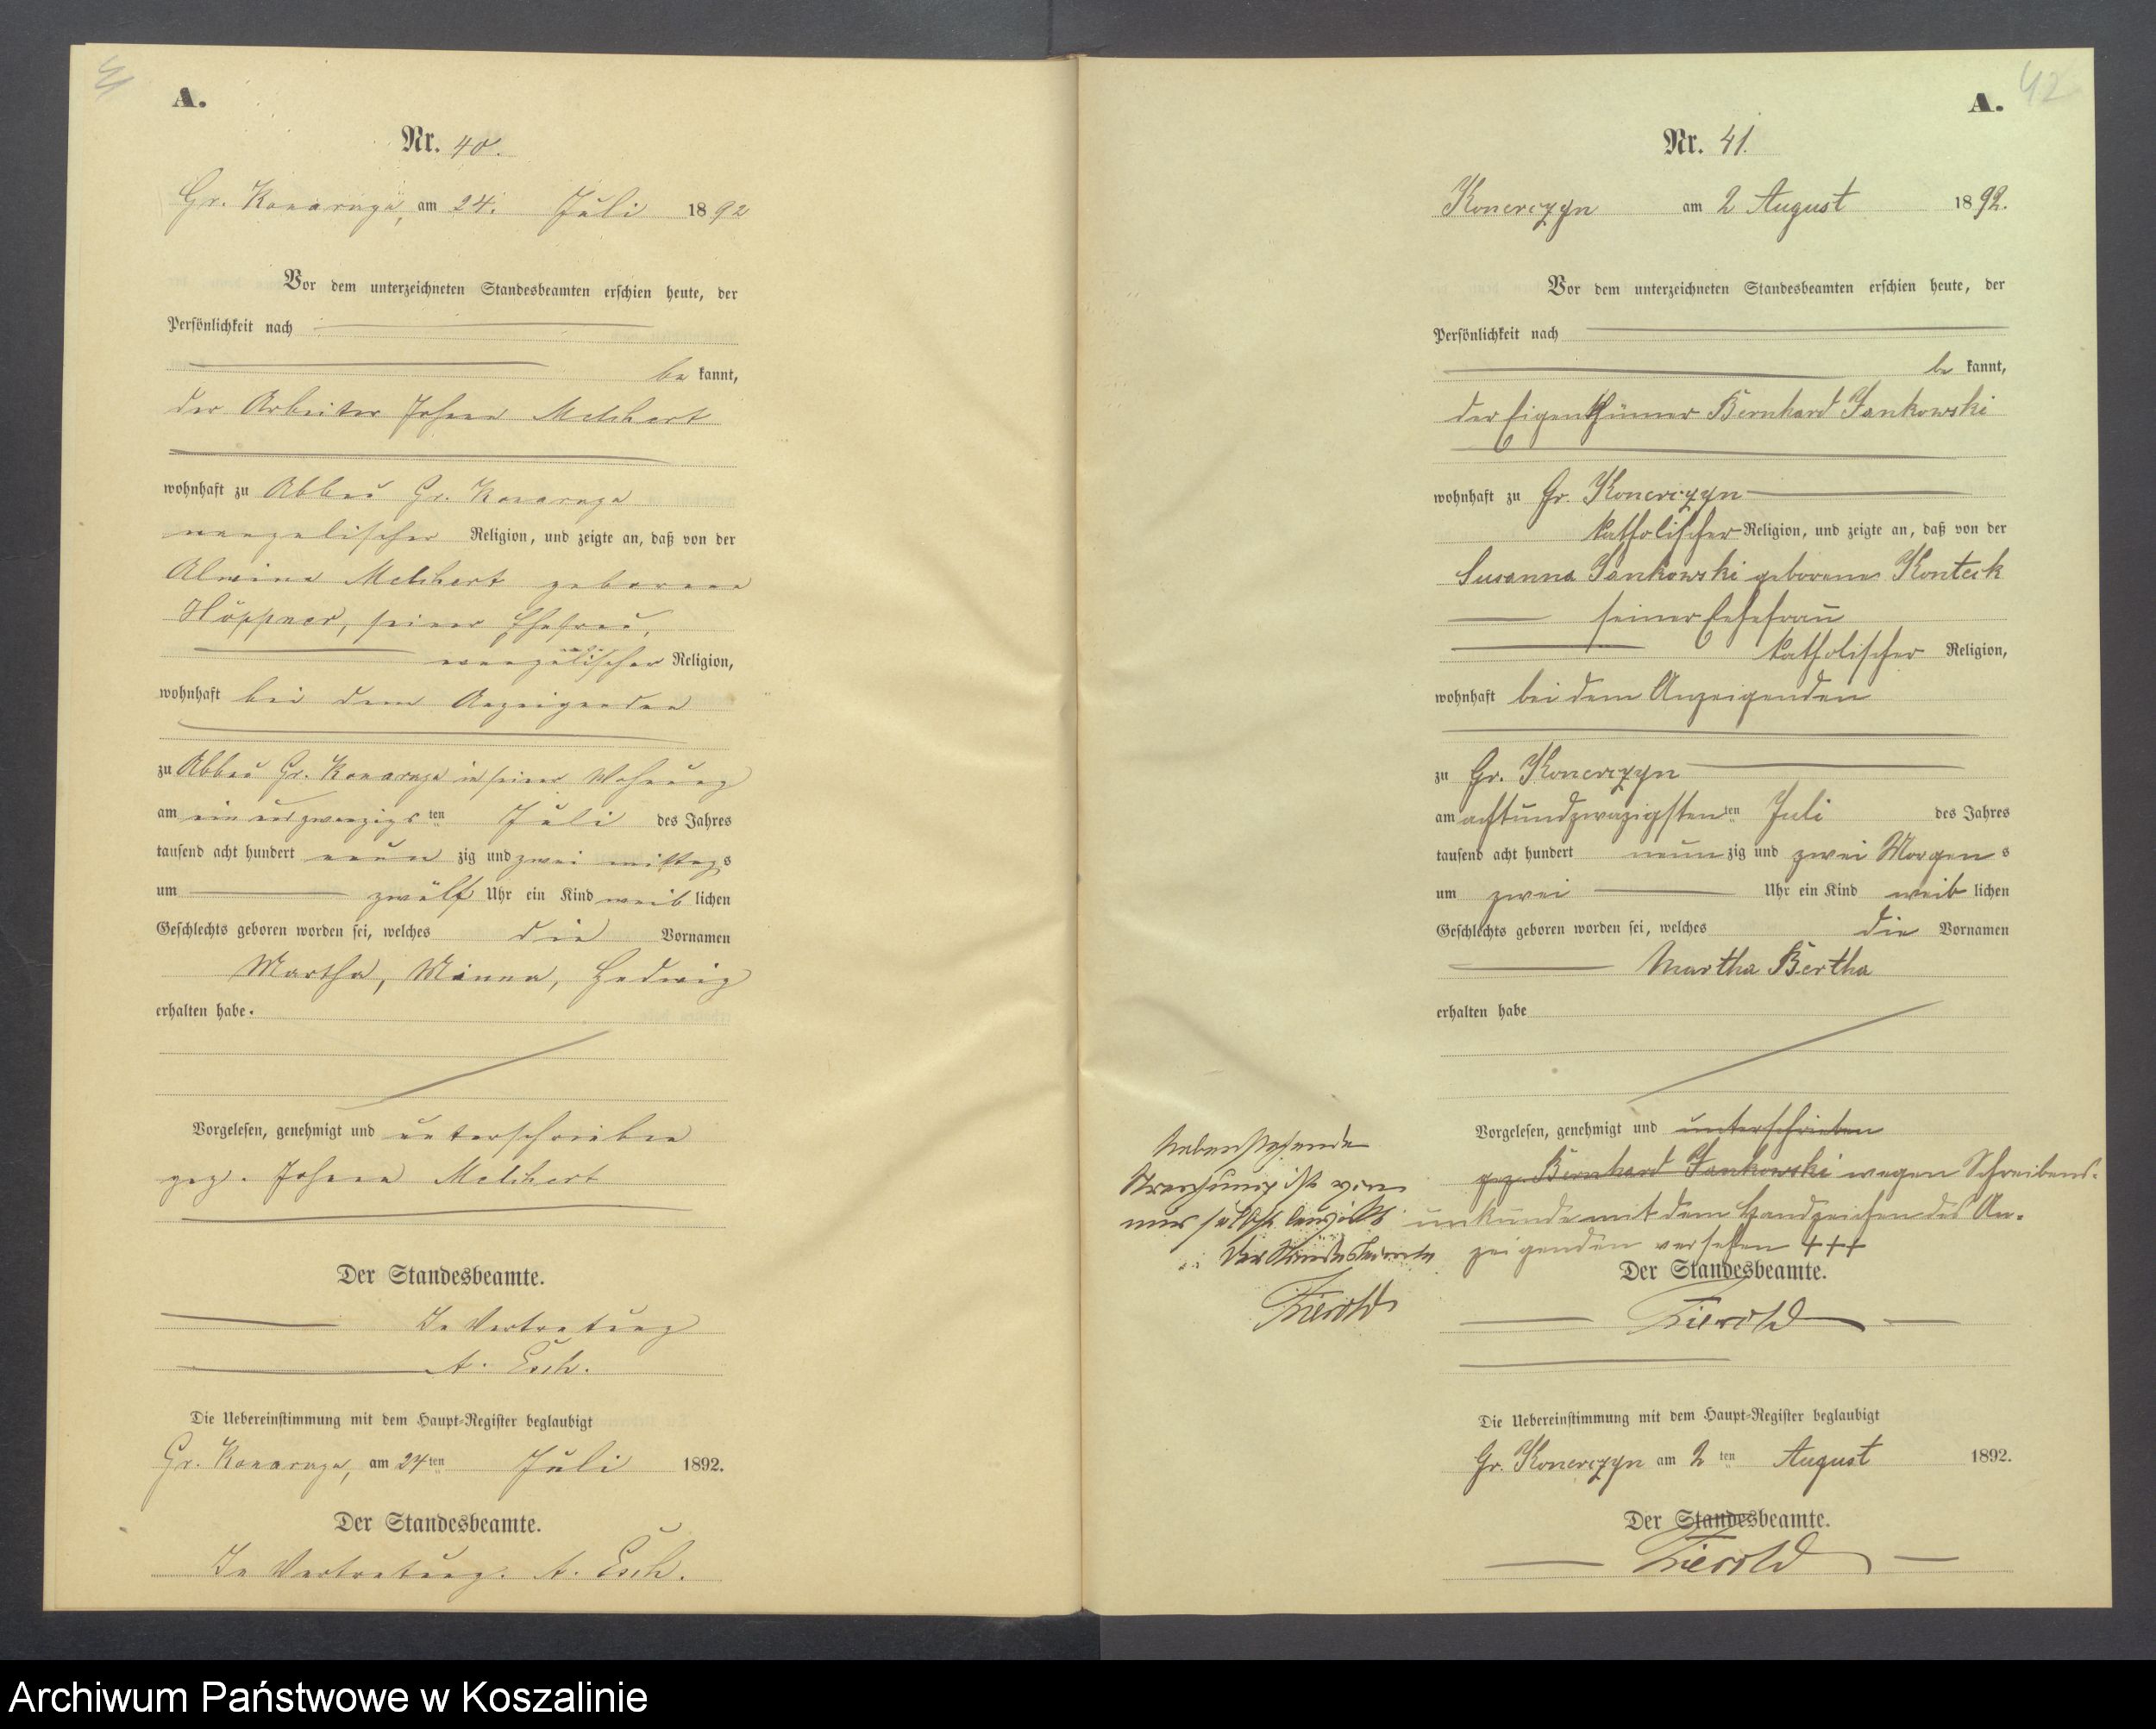 41
A.
Nr. 40.
Gr. Konarczyn, am 24. Juli 1892
Vor dem unterzeichneten Standesbeamten erschien heute, der
Persönlichkeit nach
bekannt,
der Arbeiter Johann Melchert
wohnhaft zu Abbau Gr. Konarczyn
evangelischer Religion, und zeigte an, daß von der
Alwine Melchert geborene
Höppner, seiner Ehefrau,
evangelischer Religion,
wohnhaft bei dem Anzeigenden
zu Abbau Gr. Konarczyn in seiner Wohnung
am ein und zwanzigsten Juli des Jahres
tausend acht hundert neunzig und zwei mittags
um zwölf Uhr ein Kind weiblichen
Geschlechts geboren worden sei, welches die Vornamen
Martha, Minna, Hedwig
erhalten habe.
Vorgelesen, genehmigt und unterschrieben
gez. Johann Melchert
Der Standesbeamte.
In Vertretung
A. Esch.
Die Uebereinstimmung mit dem Haupt-Register beglaubigt
Gr. Konarczyn, am 24ten Juli 1892.
Der Standesbeamte.
In Vertretung: A. Esch.
42
A.
Nr. 41.
Konerczyn am 2 August 1892.
Vor dem unterzeichneten Standesbeamten erschien heute, der
Persönlichkeit nach
bekannt,
der Eigenthümer Bernhard Jankowski
wohnhaft zu Gr. Konerczyn
katholischer Religion, und zeigte an, daß von der
Susanna Jankowski geborene Konteck
seiner Ehefrau
katholischer Religion,
wohnhaft bei dem Anzeigenden
zu Gr. Konerczyn
am achtundzwazigsten ten Juli des Jahres
tausend acht hundert neunzig und zwei Morgens
um zwei Uhr ein Kind weiblichen
Geschlechts geboren worden sei, welches die Vornamen
Martha Bertha
erhalten habe
Vorgelesen, genehmigt und unterschrieben
gez. Bernhard Jankowski wegen Schreibens-
unkunde mit dem Handzeichen des An-
zeigenden versehen +++
Nebenstehende
Streichung ist von
mir selbst bewirkt
Der Standesbeamte
Der Standesbeamte.
Die Uebereinstimmung mit dem Haupt-Register beglaubigt
Gr. Konerczyn am 2 ten August 1892.
Der Standesbeamte.
Archiwum Państwowe w Koszalinie